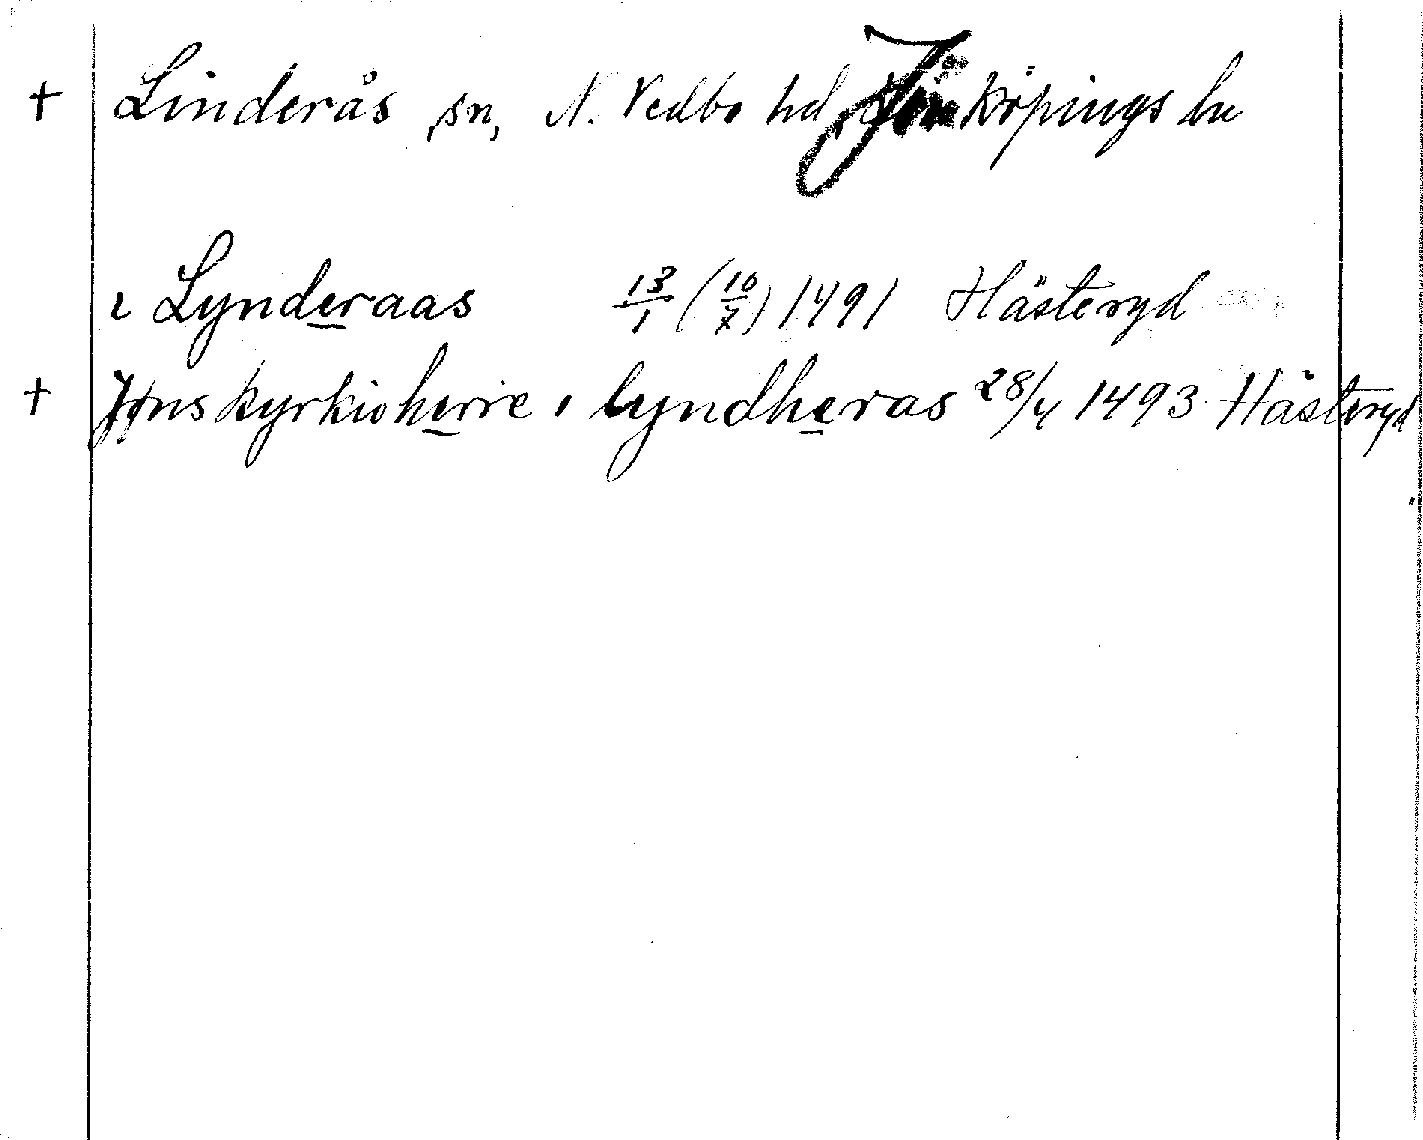 † Linderås sn, N. Vedbo hd, Jönköpings ln
i Lynderaas 13/1 (10/7) 1491 Hästeryd
† Jøns kyrkioherre i lyndheras 28/4 1493 Hästeryd